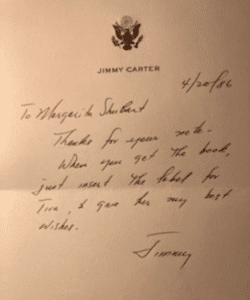 JIMMY CARTER
4/20/86
To Margarita Shubert
Thanks for your note.
When you get the book,
just insert the label for
Tina, & give her my best
wishes.
Jimmy